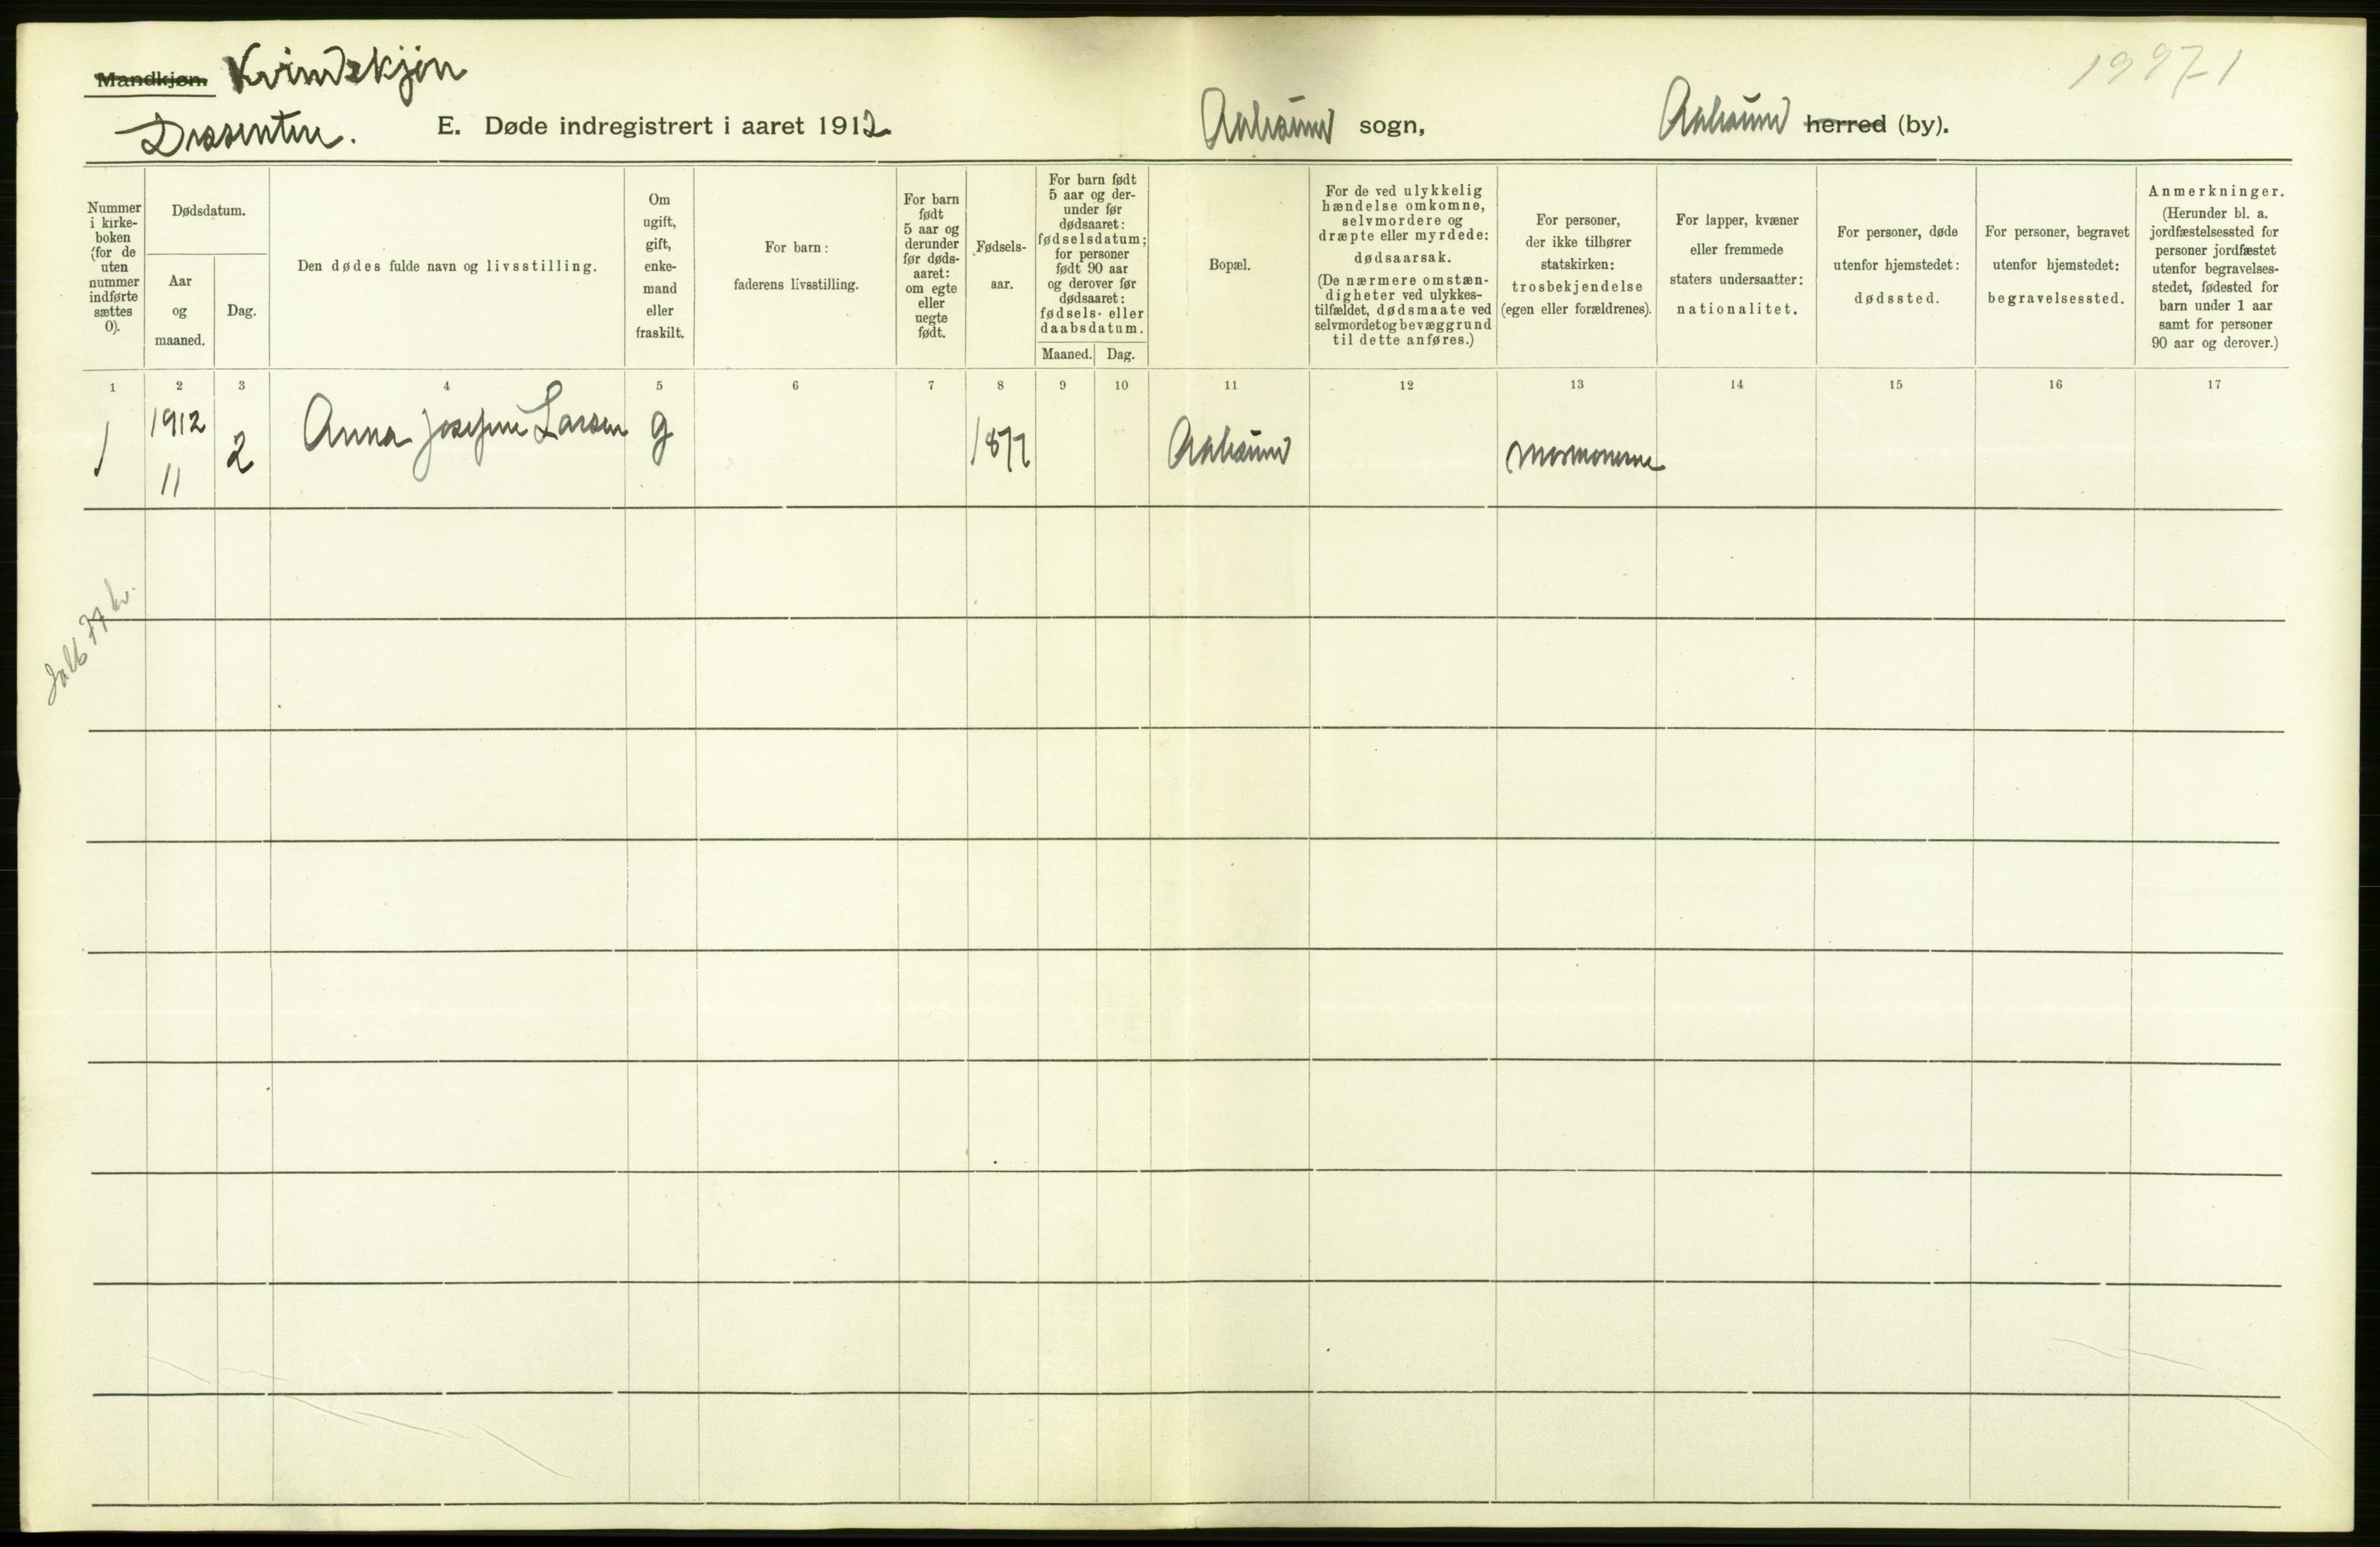 Mandkjøn. Kvindekjøn
19971
Dissentere. E. Døde indregistrert i aaret 1912 Aalesund sogn, Aalesund herred (by).
Nummer
i kirke-
boken
(for de
uten
nummer
indførte
sættes
0).
Dødsdatum.
Aar
og
maaned.
Dag.
Den dødes fulde navn og livsstilling.
Om
ugift,
gift,
enke-
mand
eller
fraskilt.
For barn:
faderens livsstilling.
For barn
født
5 aar og
derunder
før døds-
aaret:
om egte
eller
uegte
født.
Fødsels-
aar.
For barn født
5 aar og der-
under før
dødsaaret:
fødselsdatum;
for personer
født 90 aar
og derover før
dødsaaret:
fødsels- eller
daabsdatum.
Maaned. Dag.
Bopæl.
For de ved ulykkelig
hændelse omkomne,
selvmordere og
dræpte eller myrdede:
dødsaarsak.
(De nærmere omstæn-
digheter ved ulykkes-
tilfældet, dødsmaate ved
selvmordet og bevæggrund
til dette anføres.)
For personer,
der ikke tilhører
statskirken:
trosbekjendelse
(egen eller forældrenes).
For lapper, kvæner
eller fremmede
staters undersaatter:
nationalitet.
For personer, døde
utenfor hjemstedet:
dødssted.
For personer, begravet
utenfor hjemstedet:
begravelsessted.
Anmerkninger.
(Herunder bl. a.
jordfæstelsessted for
personer jordfæstet
utenfor begravelses-
stedet, fødested for
barn under 1 aar
samt for personer
90 aar og derover.)
1 2 3 4 5 6 7 8 9 10 11 12 13 14 15 16 17
1 1912 11 2 Anna Josefine Larsen g 1877 Aalesund Mormonerne